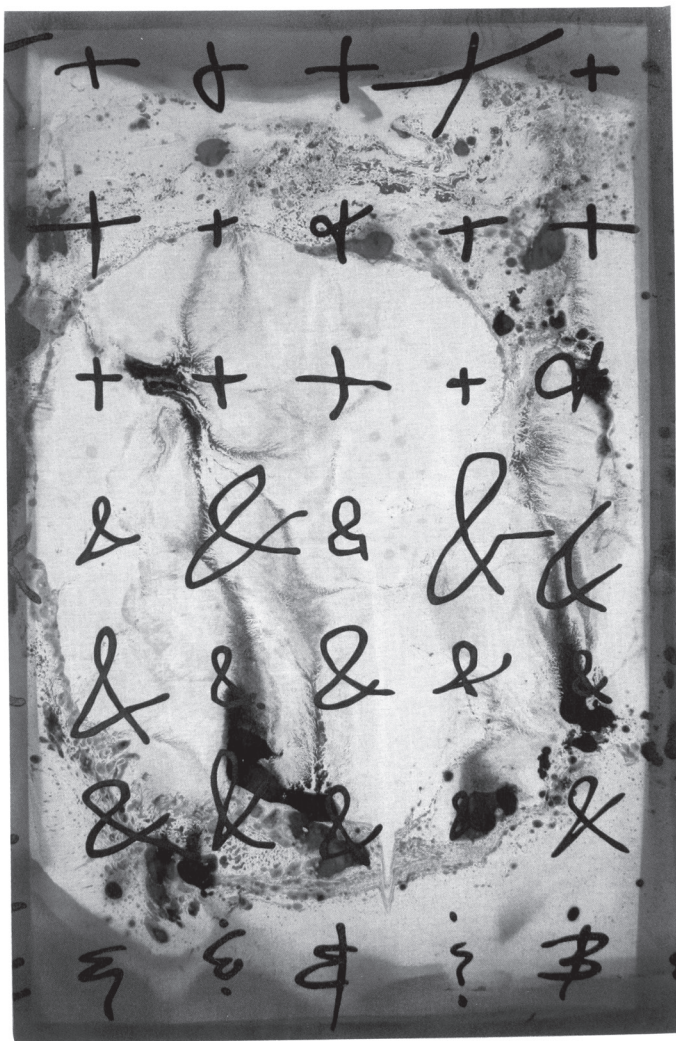 + + + + +
+ + & + +
+ + + + &
& & & & &
& & & & &
& & & & &
& & & & &